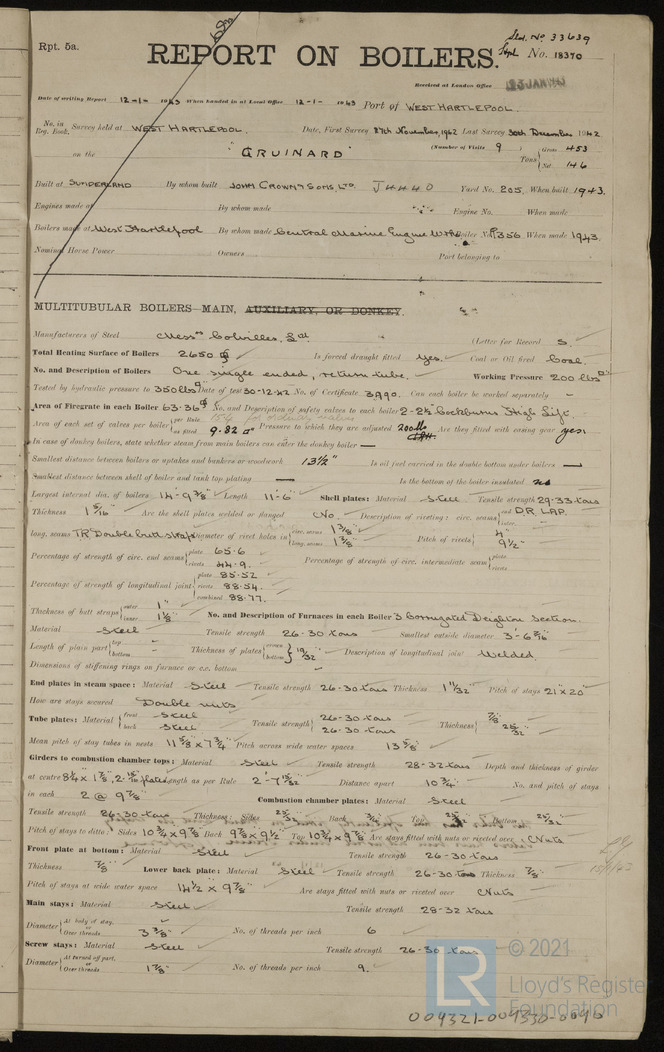 Rpt. 5a.
Sld. No. 33639
REPORT ON BOILERS.
Hpl No. 18370
Received at London Office
Date of writing Report 12-1-1943 When handed in at Local Office 12-1-1943 Port of WEST HARTLEPOOL.
No. in Reg. Book. Survey held at WEST HARTLEPOOL. Date, First Survey 27th November, 1942 Last Survey 30th December 1942
(Number of Visits 9 )
on the "GRUINARD" Tons Gross 453 Net 146
Built at SUNDERLAND By whom built JOHN CROWN & SONS, LTD. J4440 Yard No. 205. When built 1943.
Engines made at By whom made Engine No. When made
Boilers made at West Hartlepool By whom made Central Marine Engine Wks Boiler No. P356 When made 1943.
Nominal Horse Power Owners Port belonging to
MULTITUBULAR BOILERS—MAIN, AUXILIARY, OR DONKEY.
Manufacturers of Steel Messrs Colvilles, Ltd (Letter for Record S.
Total Heating Surface of Boilers 2650 Is forced draught fitted yes. Coal or Oil fired Coal.
No. and Description of Boilers One single ended, return tube. Working Pressure 200 lbs
Tested by hydraulic pressure to 350 lbs Date of test 30-12-42 No. of Certificate 3990. Can each boiler be worked separately –
Area of Firegrate in each Boiler 63.36 No. and Description of safety valves to each boiler 2-2½ Cockburns High Lift.
Area of each set of valves per boiler per Rule as fitted 9.82 Pressure to which they are adjusted 200 lbs Are they fitted with easing gear yes.
In case of donkey boilers, state whether steam from main boilers can enter the donkey boiler —
Smallest distance between boilers or uptakes and bunkers or woodwork 13½" Is oil fuel carried in the double bottom under boilers —
Smallest distance between shell of boiler and tank top plating — Is the bottom of the boiler insulated
Largest internal dia. of boilers 14'-9⅜" Length 11'-6" Shell plates: Material Steel Tensile strength 29-33 tons
Thickness 1 5/16" Are the shell plates welded or flanged No. Description of riveting: circ. seams end DR. LAP. inter.
long. seams TR Double butt straps Diameter of rivet holes in circ. seams 1⅜" long. seams 1⅜" Pitch of rivets 4" 9½"
Percentage of strength of circ. end seams plate 65.6 rivets 44.9. Percentage of strength of circ. intermediate seam plate rivets
Percentage of strength of longitudinal joint plate 85.52 rivets 88.54. combined 88.77.
Thickness of butt straps outer 1" inner 1⅛" No. and Description of Furnaces in each Boiler 3 Corrugated Deighton Section.
Material Steel Tensile strength 26-30 tons Smallest outside diameter 3'-6 5/16"
Length of plain part top bottom Thickness of plates crown bottom 19/32" Description of longitudinal joint Welded.
Dimensions of stiffening rings on furnace or c.c. bottom
End plates in steam space: Material Steel Tensile strength 26-30 tons Thickness 1 1/32" Pitch of stays 21" x 20"
How are stays secured Double nuts
Tube plates: Material front Steel back Steel Tensile strength 26-30 tons 26-30 tons Thickness ⅞" 25/32"
Mean pitch of stay tubes in nests 11⅝ x 7¾" Pitch across wide water spaces 13⅝"
Girders to combustion chamber tops: Material Steel Tensile strength 28-32 tons Depth and thickness of girder
at centre 8¼ x 1⅞, 2-15/16 plates Length as per Rule 2'-7 15/32 Distance apart 10¾" No. and pitch of stays
in each 2 @ 9⅞" Combustion chamber plates: Material Steel
Tensile strength 26-30 tons Thickness: Sides 25/32 Back ¾" Top 25/32 Bottom 25/32
Pitch of stays to ditto: Sides 10¾ x 9⅞ Back 9⅞ x 9½" Top 10¾ x 9⅞ Are stays fitted with nuts or riveted over Nuts
Front plate at bottom: Material Steel Tensile strength 26-30 tons
Thickness ⅞" Lower back plate: Material Steel Tensile strength 26-30 tons Thickness ⅞"
Pitch of stays at wide water space 14½ x 9⅞" Are stays fitted with nuts or riveted over Nuts
Main stays: Material Steel Tensile strength 28-32 tons
Diameter At body of stay, or Over threads 3⅜" No. of threads per inch 6
Screw stays: Material Steel Tensile strength 26-30 tons
Diameter At turned off part, or Over threads 1⅞" No. of threads per inch 9.
LR
© 2021
Lloyd's Register
Foundation
004321-004330-0040